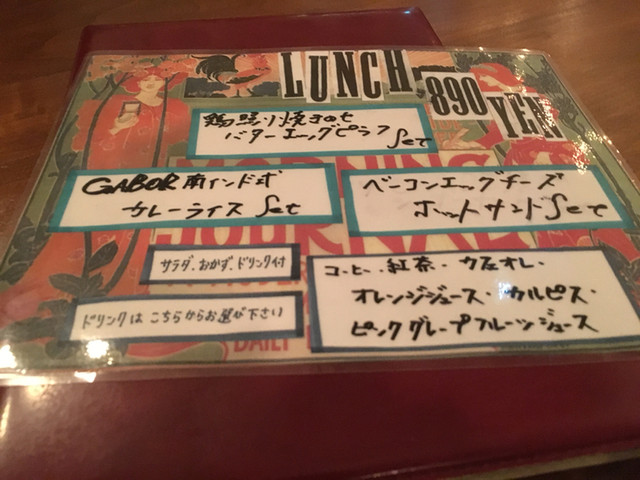 LUNCH 890 YEN
鶏照り焼きのせ
バターエッグピラフ Set
GABOR 南インド式
カレーライス Set
ベーコンエッグチーズ
ホットサンド Set
サラダ、おかず、ドリンク付
ドリンクは こちらからお選び下さい
コーヒー・紅茶・カフェオレ・
オレンジジュース・カルピス・
ピンクグレープフルーツジュース
MORNING
JOURNAL
DAILY